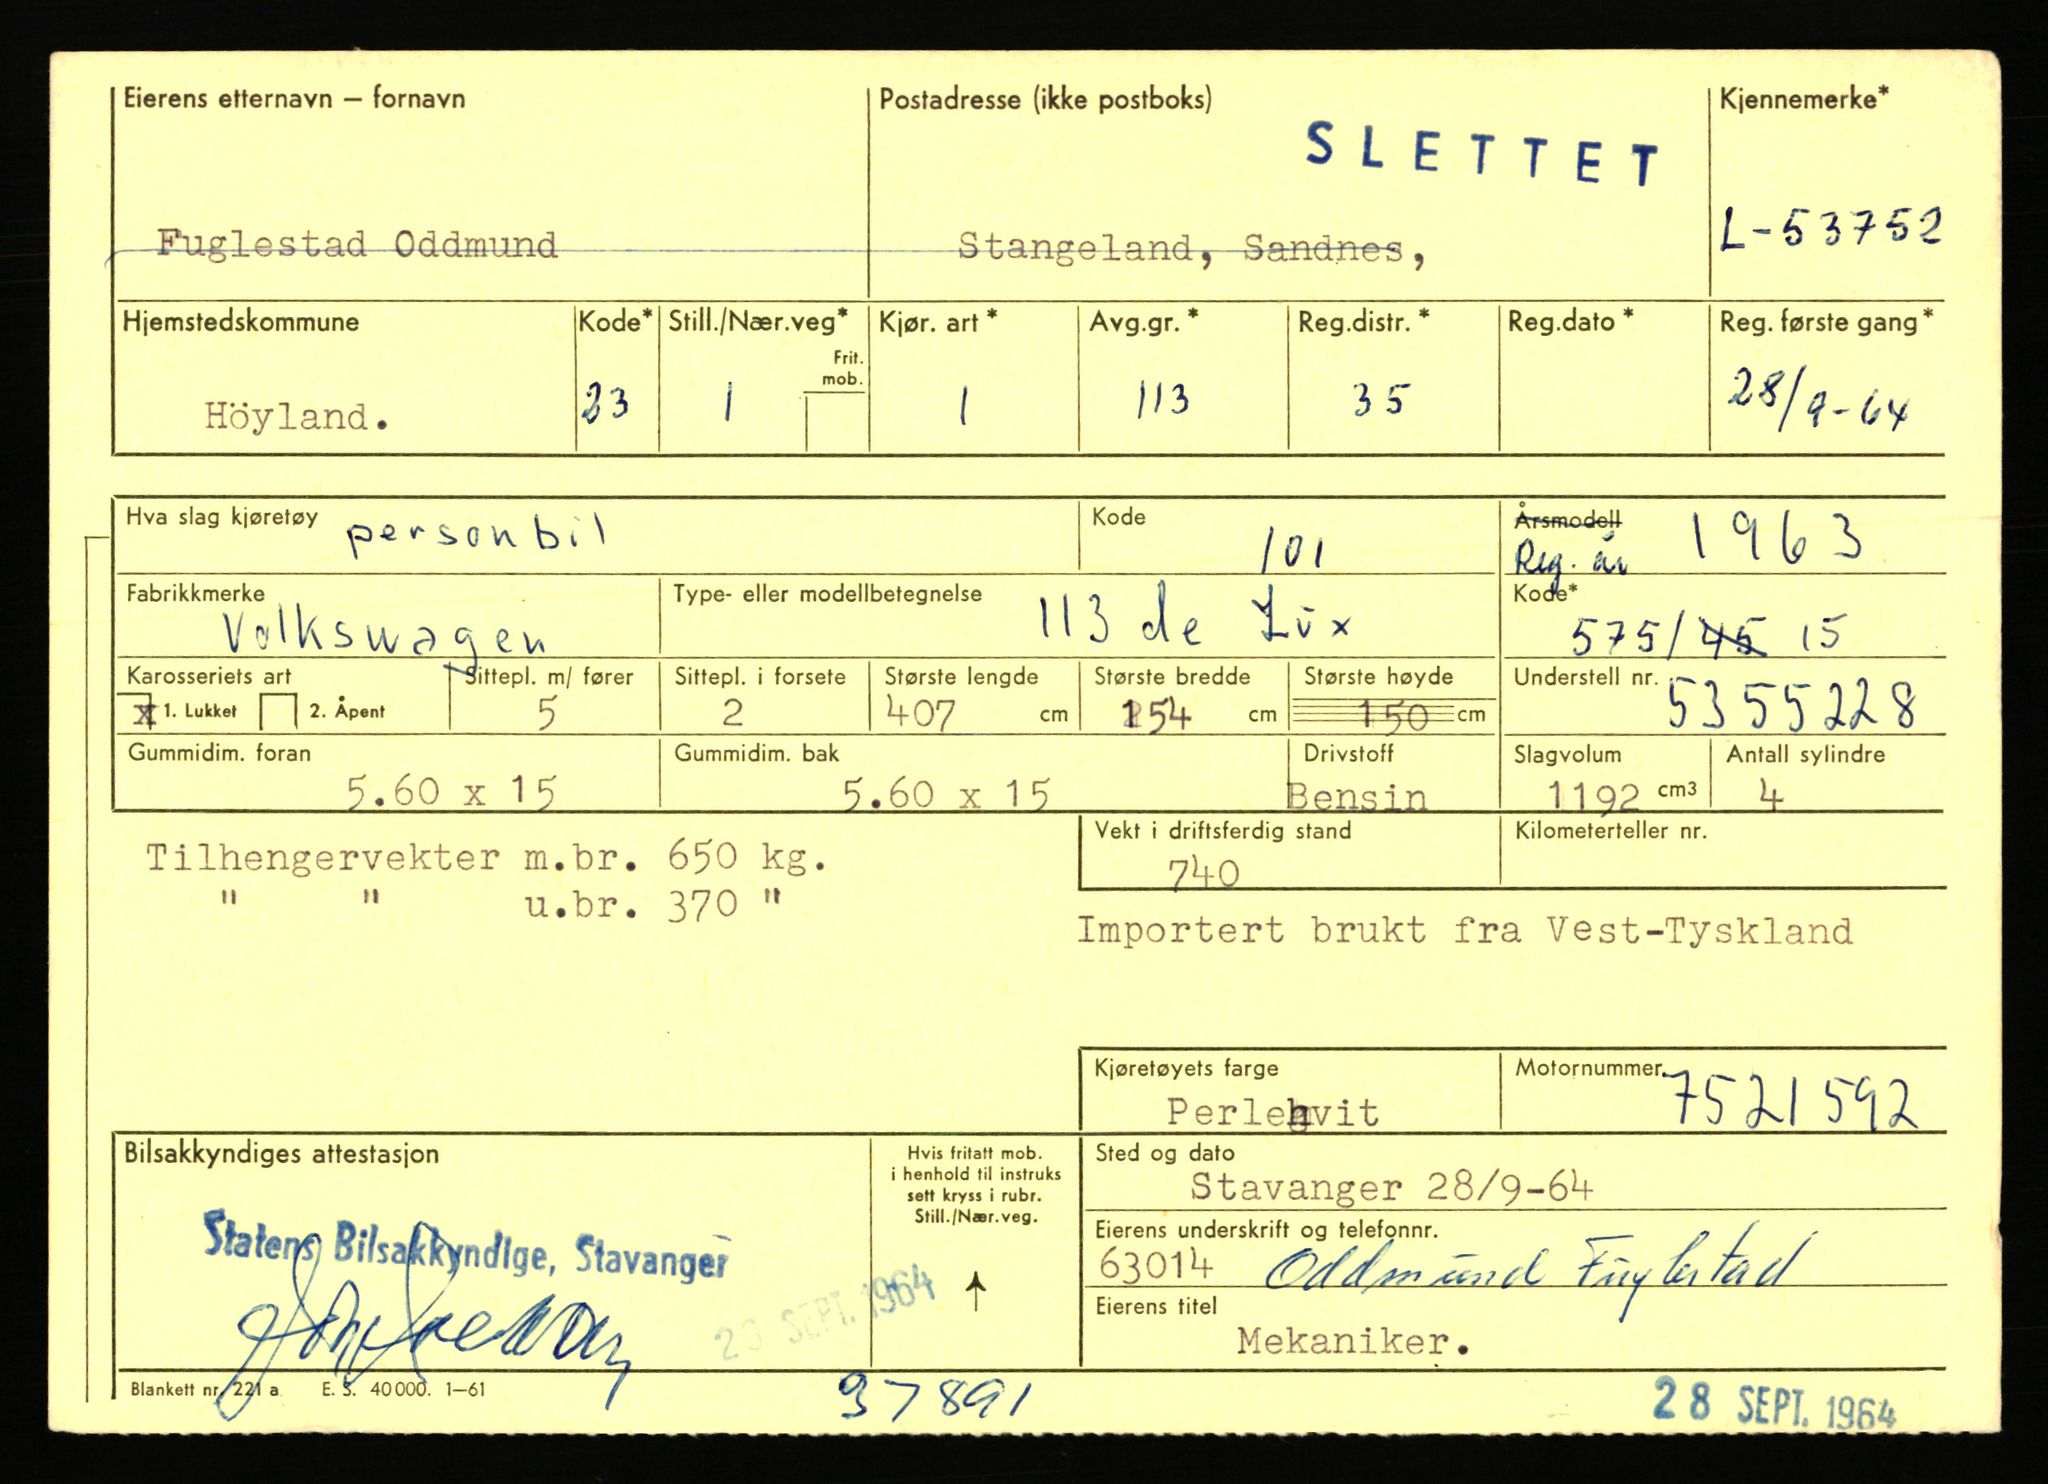 Eierens etternavn – fornavn Postadresse (ikke postboks) Kjennemerke*
SLETTET
Fuglestad Oddmund Stangeland, Sandnes, L-53752
Hjemstedskommune Kode* Still./Nær.veg* Kjør. art* Avg.gr.* Reg.distr.* Reg.dato* Reg. første gang*
Frit.
mob.
Höyland. 23 1 1 113 35 28/9-64
Hva slag kjøretøy personbil Kode 101 Årsmodell Reg. år 1963
Fabrikkmerke Type- eller modellbetegnelse Kode*
Volkswagen 113 de Lux 575/45 15
Karosseriets art Sittepl. m/ fører Sittepl. i forsete Største lengde Største bredde Største høyde Understell nr. 5355228
x 1. Lukket 2. Åpent 5 2 407 cm 154 cm 150 cm
Gummidim. foran Gummidim. bak Drivstoff Slagvolum Antall sylindre
5.60 x 15 5.60 x 15 Bensin 1192 cm3 4
Vekt i driftsferdig stand Kilometerteller nr.
Tilhengervekter m.br. 650 kg. 740
" " u.br. 370 "
Importert brukt fra Vest-Tyskland
Kjøretøyets farge Motornummer 7521592
Perlehvit
Bilsakkyndiges attestasjon
Hvis fritatt mob.
i henhold til instruks
sett kryss i rubr.
Still./Nær.veg.
Sted og dato
Stavanger 28/9-64
Statens Bilsakkyndige, Stavanger
SEPT. 1964
Eierens underskrift og telefonnr.
63014 Oddmund Fuglestad
Eierens titel
Mekaniker.
Blankett nr. 221 a E. S. 40000. 1–61
37891
28 SEPT. 1964